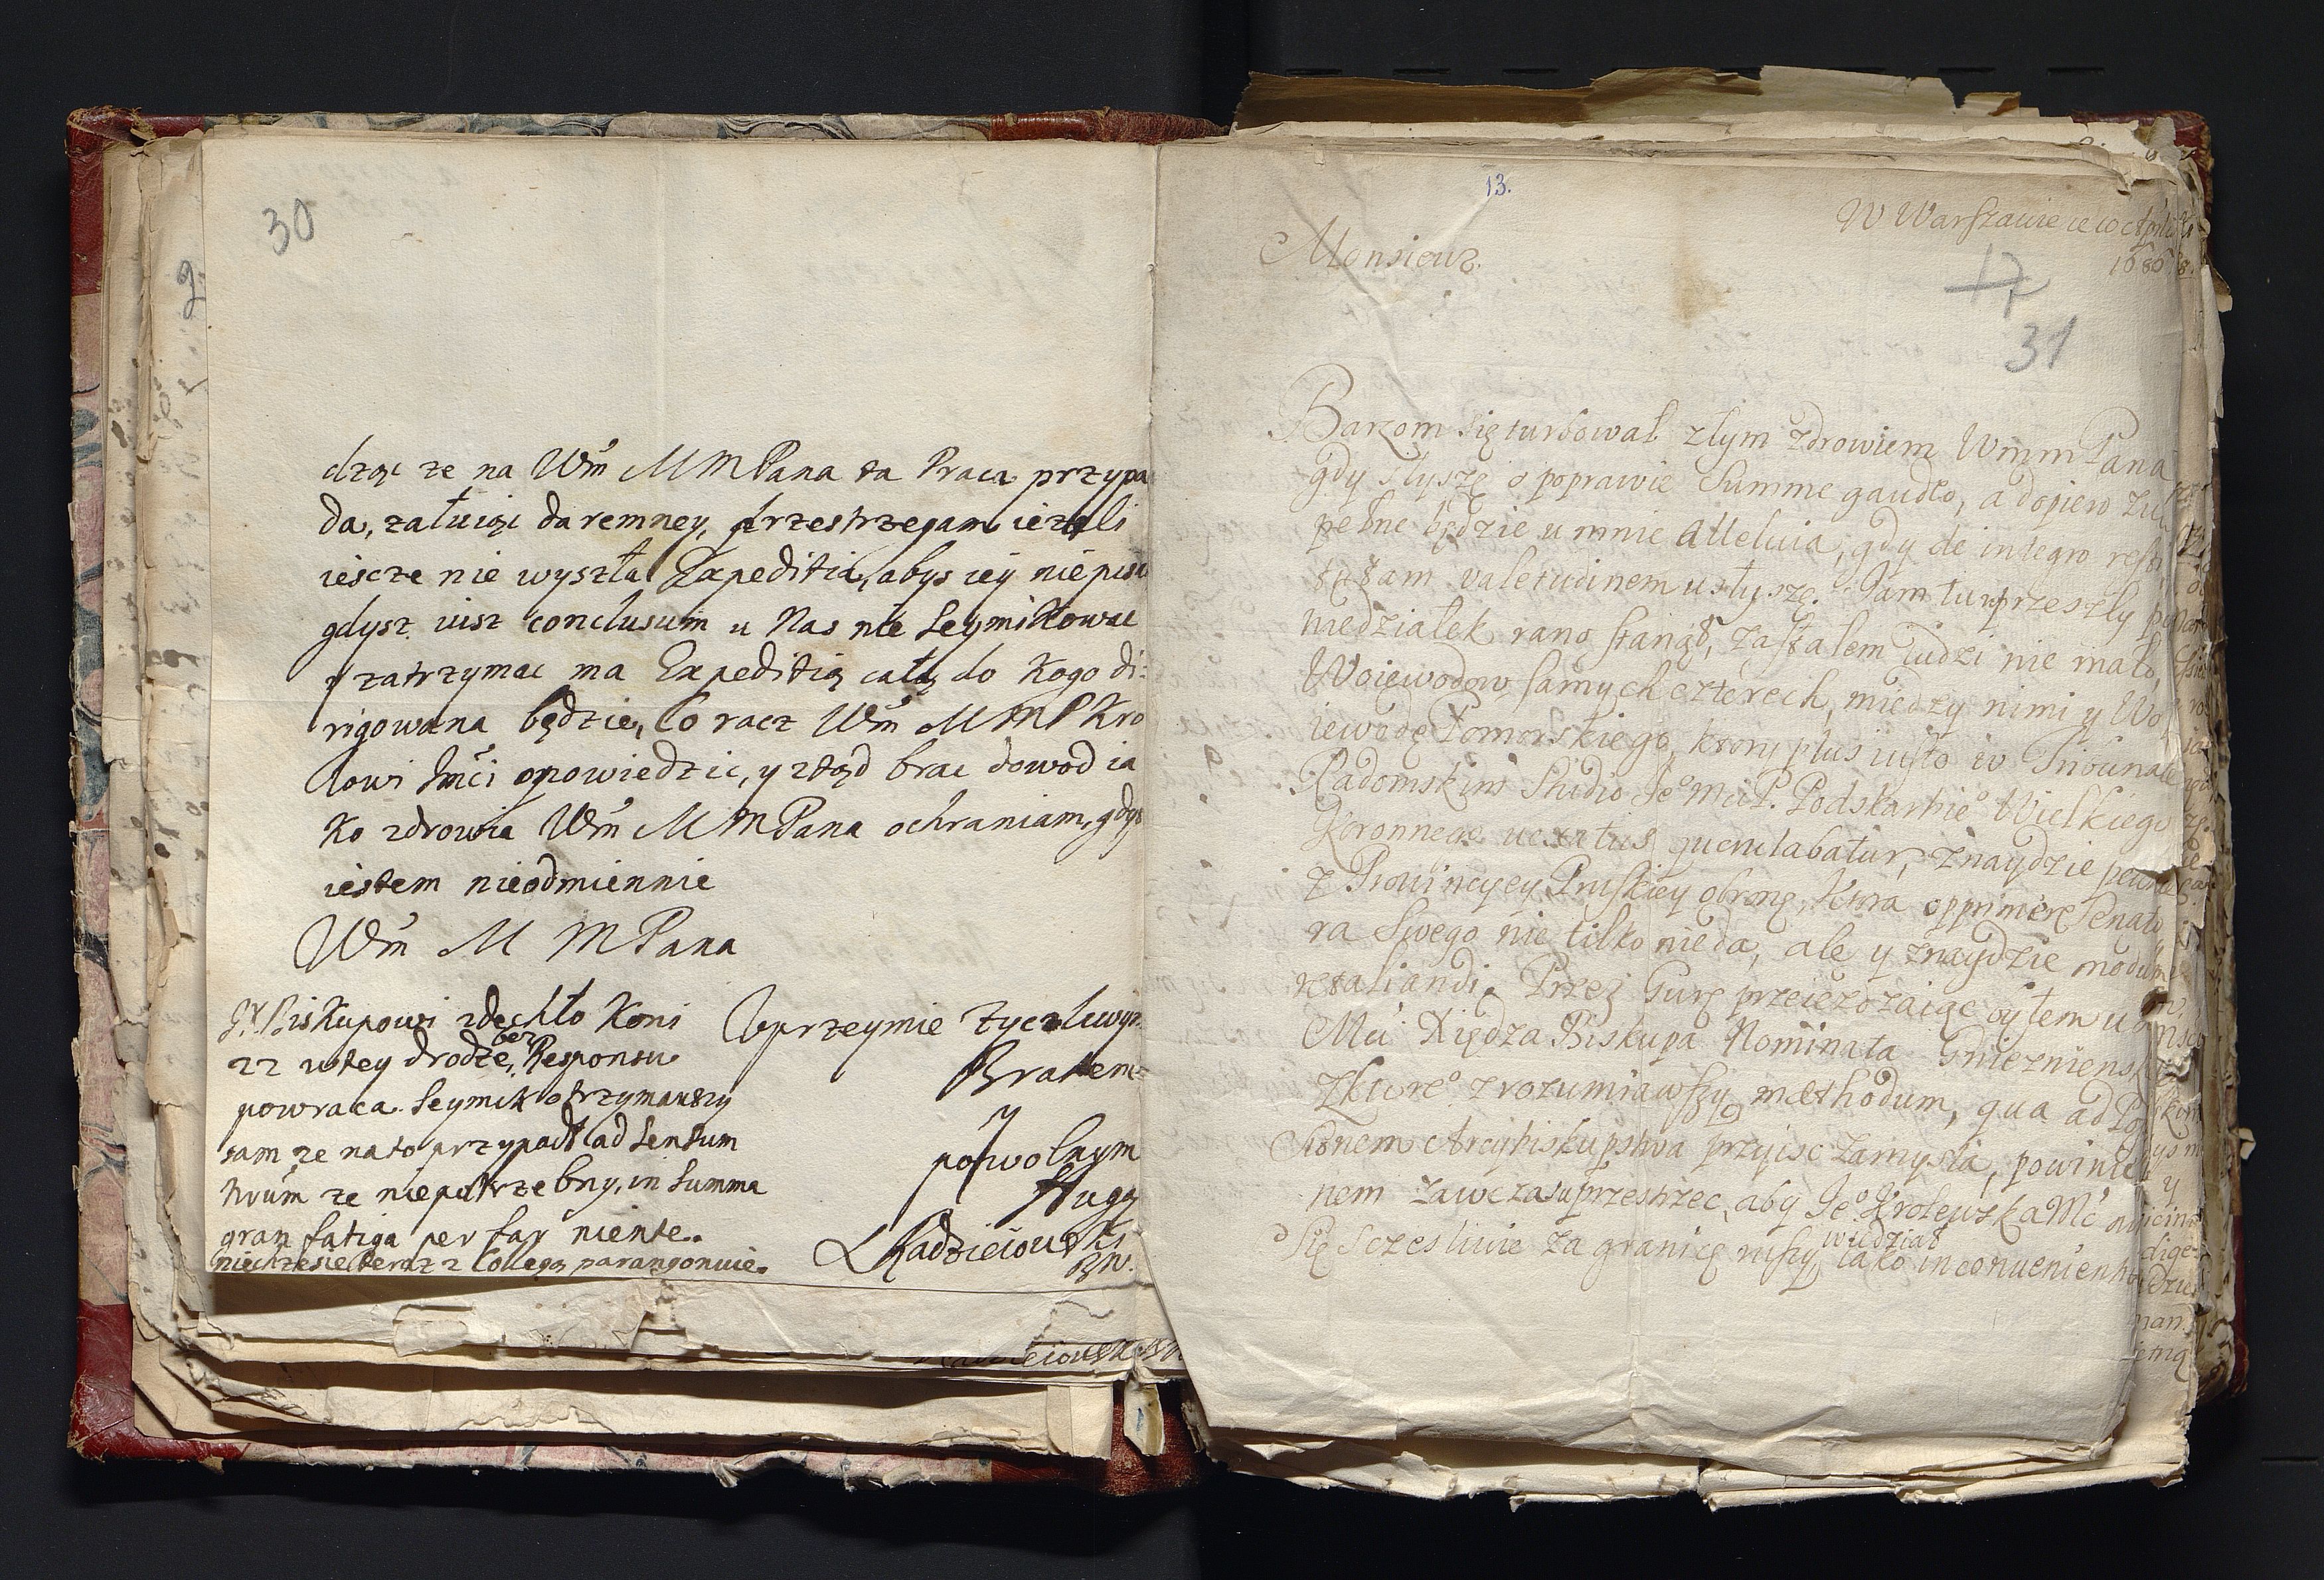 30
dząc ze na Wm M M Pana ta Praca przypa
da, załuiąc daremney, przestrzegam iezeli
iescze nie wyszła Expeditia, abys iey nie pisał
gdysz iusz conclusum u Nas nie Seymikowac
y zatrzymac ma Expeditią całą do Kogo di:
rigowana będzie, Co racz Wm M M P Kro
lowi Jmci opowiedzic, y ztąd brac dowod ia
Ko zdrowia Wm M M Pana ochraniam, gdys
iestem nieodmiennie
Wm M M Pana
Uprzeymie Zyczliwym
Bratem
y
powolnym
Sługą
Radzieiowski
X. Biskupowi zdechło Koni
22 w tey drodze, bez Responsu
powraca. Seymik otrzymawszy
tam ze na to przypadł ad Sensum
ze niepotrzebny, in Summa
gran fatiga per far niente.
niechze sie teraz z Collegą parangonuie.
13.
W Warszawie Aprilis
1686
17
31
Monsieur.
Barzom się turbował złym zdrowiem Wmm Pana
gdy słyszę o poprawie Summe gaudeo, a dopiero zu
pełne będzie u mnie Alleluia, gdy de integro resti
tutam valetudinem usłyszę. Jam tu w przeszły po
niedziałek rano stanął, zastałem ludzi nie mało,
Woiewodow samych czterech, miedzy nimi y Wo
iewodę Pomorskiego, ktory plus iusto w Tribunale
Radomskim Studio Je° Mci P. Podskarbie° Wielkiego
Koronnego vexatus querulabatur, znaydzie pewnie
z Prowincyey Pruskiey obronę, Ktora opprimere Senato
ra Swego nie tilko nie da, ale y znaydzie modum
retaliandi. Przez Gurę przeiezdzaiąc byłem u
Mci Xiędza Biskupa Nominata Gnieznienskiego
Zktore° zrozumiawszy methodum, qua ad Po
ssionem Arcybiskupstwa przyisc zamysla, powinie
nem zawczasu przestrzec, aby Je° Krolewska Mc
Się Sczesliwie za granicę ruszy, wiedział iako inconvenienti